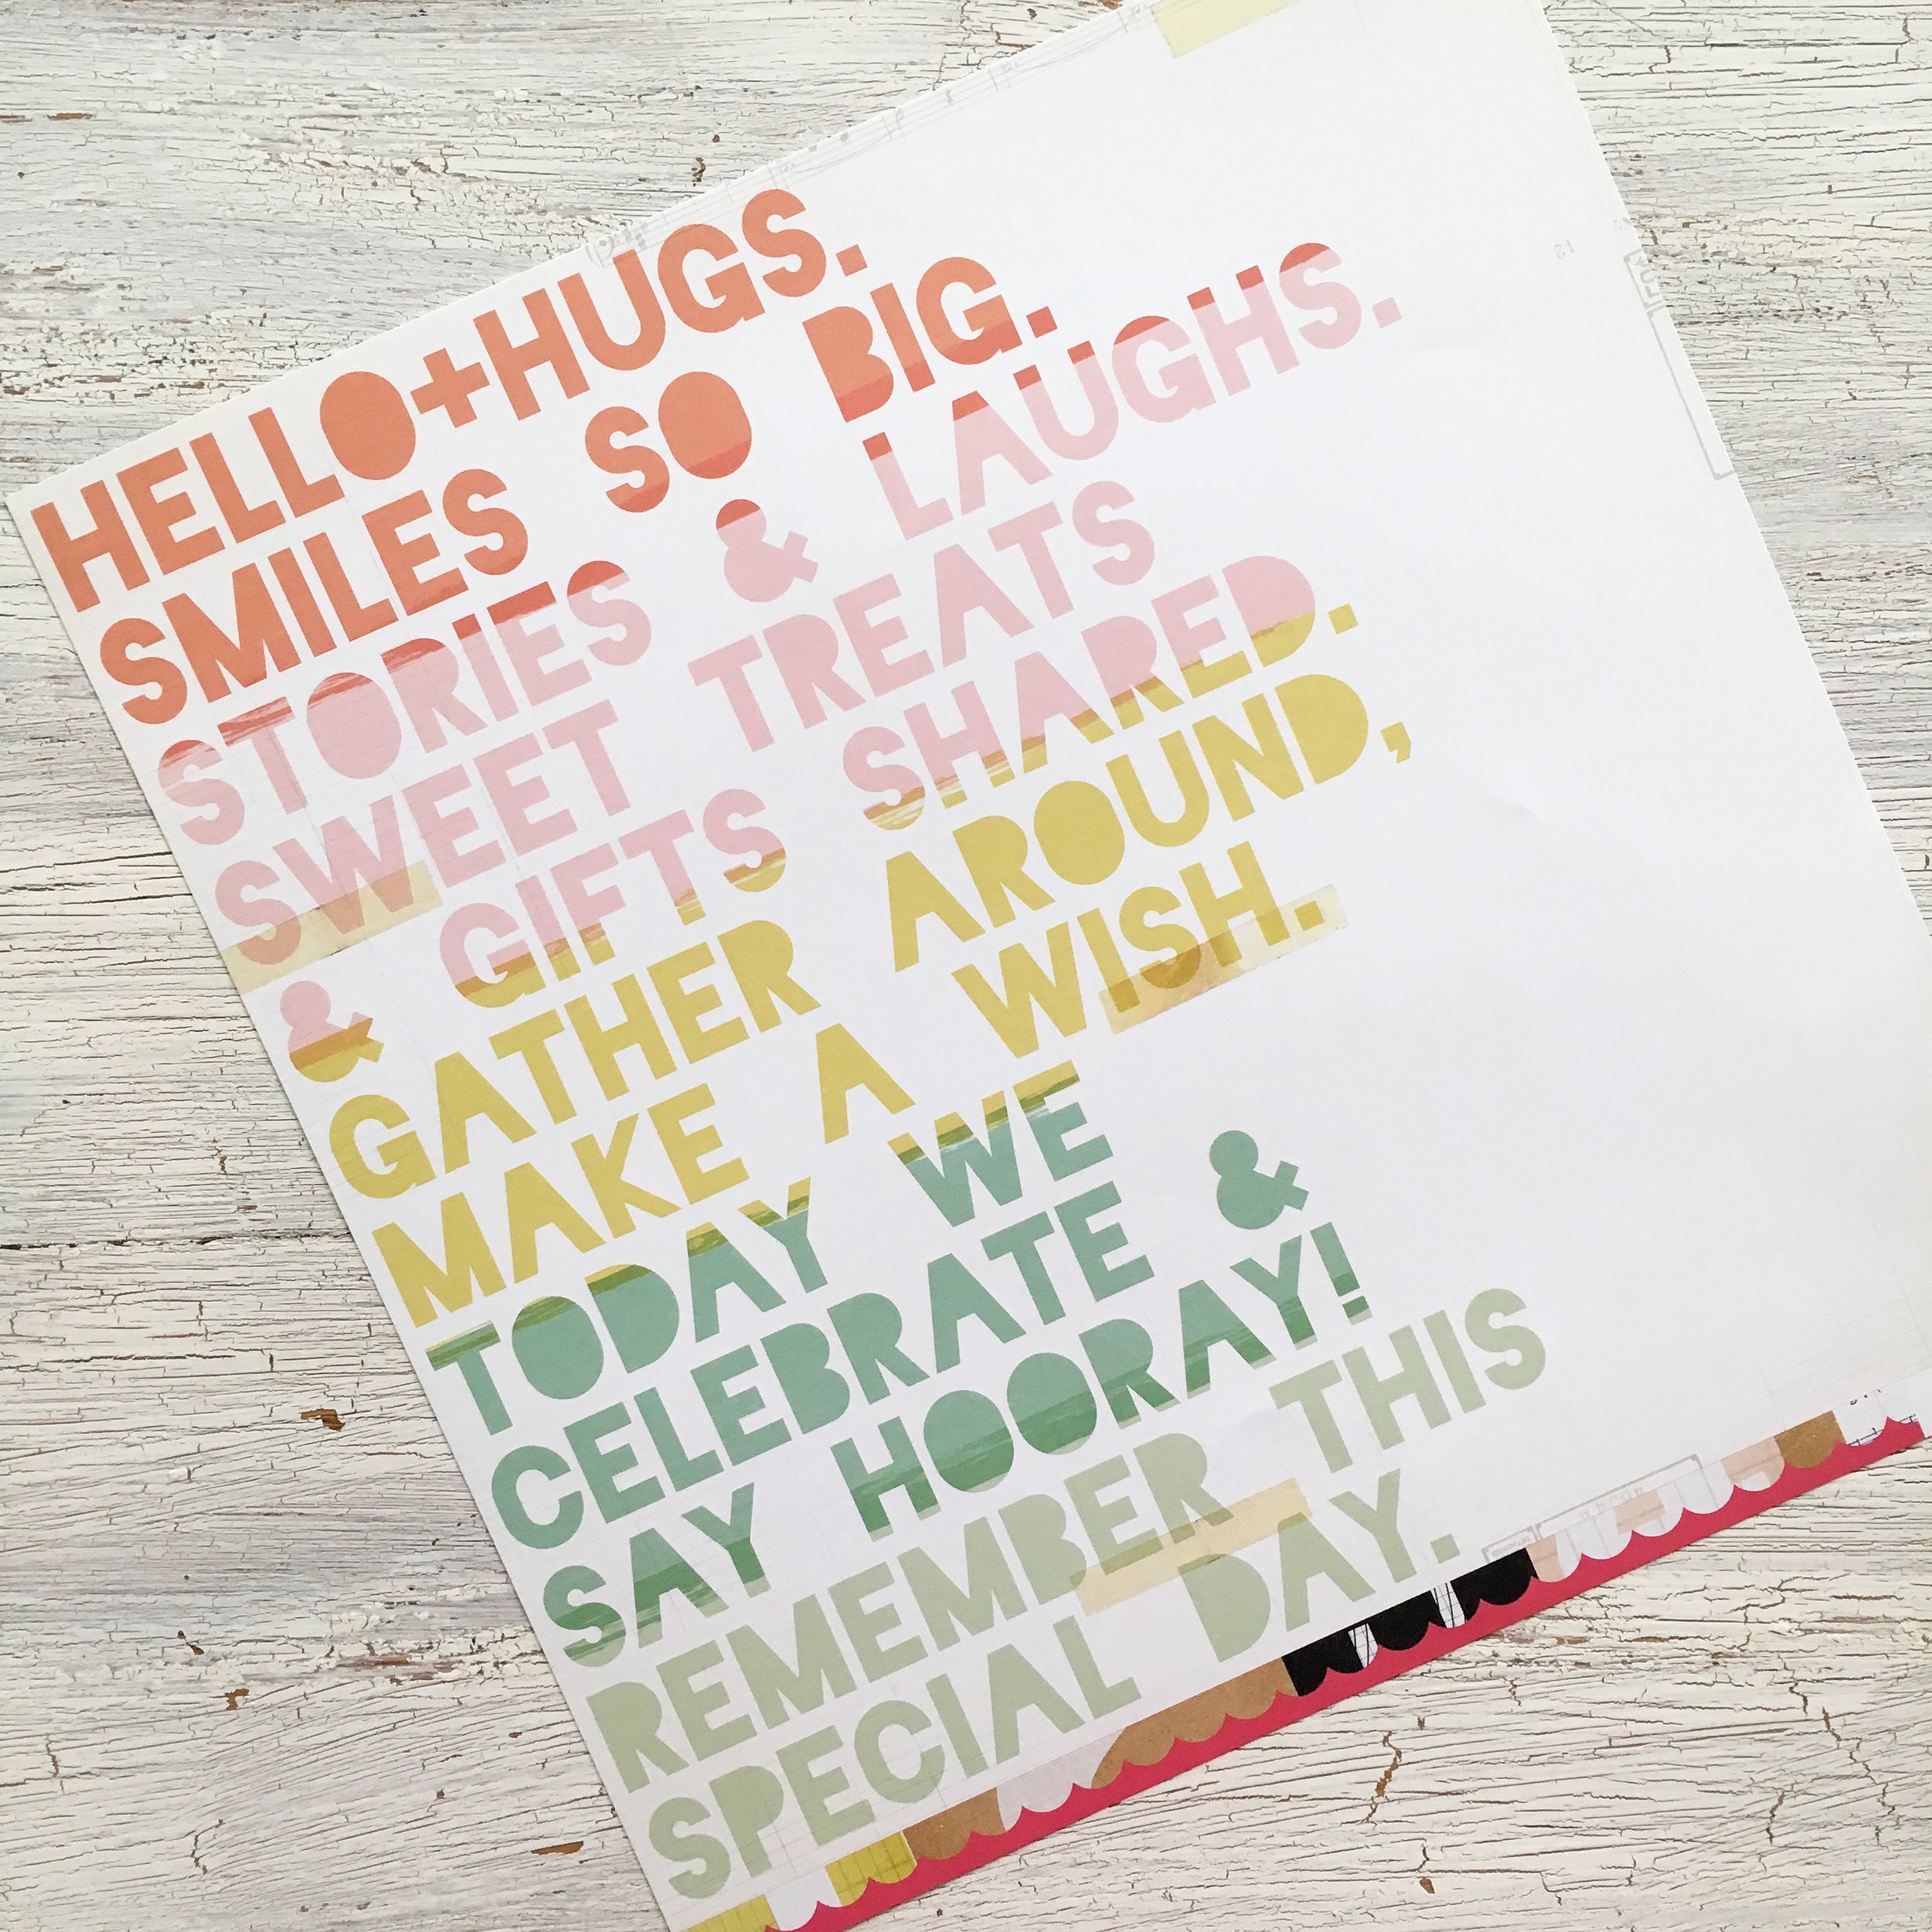 HELLO+HUGS.
SMILES SO BIG.
STORIES & LAUGHS.
SWEET TREATS
& GIFTS SHARED.
GATHER AROUND,
MAKE A WISH.
TODAY WE
CELEBRATE &
SAY HOORAY!
REMEMBER THIS
SPECIAL DAY.